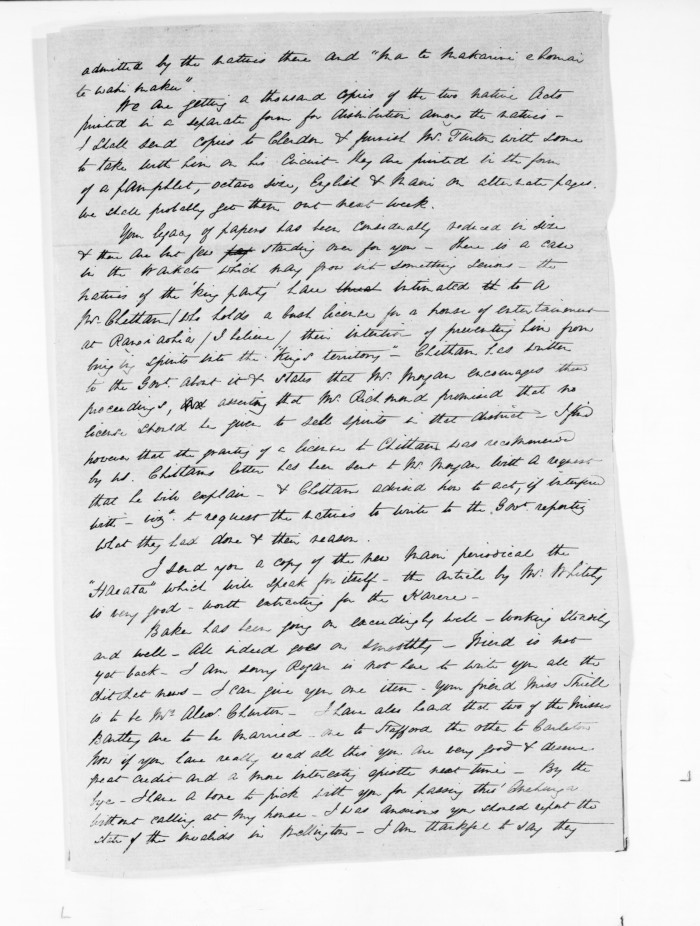 admitted by the natives there and "Ma te Makarini e homai
te wahi maku".
We are getting a thousand copies of the two Native Acts
printed in a separate form for distribution among the natives -
I shall send copies to Clendon & furnish Mr. Turton with some
to take with him on his Circuit - they are printed in the form
of a pamphlet, octavo size, English & Maori on alternate pages.
We shall probably get them out next week.
Your legacy of papers has been considerably reduced in size
& there are but few standing over for you - there is a case
in the Waikato which may grow into something serious - the
natives of the 'King party' have intimated to a
Mr. Chittam / who holds a bush license for a house of entertainment
at Rangiaohia / I believe / their intention of preventing him from
bringing spirits into the "King's territory" - Chittam has written
to the Govt. about it & states that Mr. Morgan encourages their
proceedings, asserting that Mr. Richmond promised that no
license should be given to sell spirits in that district - I find
however that the granting of a license to Chittam was recommended
by us. Chittam's letter has been sent to Mr Morgan with a request
that he will explain - & Chittam advised how to act, if interfered
with - vizt. to request the natives to write to the Govr. reporting
what they had done & their reason.
I send you a copy of the new Maori periodical the
"Haeata" which will speak for itself - the article by Mr. Whitely
is very good - worth extracting for the Karere -
Baker has been going on exceedingly well - working steadily
and well - All indeed goes on smoothly - Friend is not
yet back - I am sorry Rogan is not here to write you all the
chit chat news - I can give you one item - Your friend Miss
is to be Mrs Alexr. - I have also heard that two of the Misses
Bartley are to be married - one to Stafford the other to
Now if you have really read all this you are very good & deserve
great credit and a more interesting epistle next time - By the
bye - I have a bone to pick with you for passing thro' Onehunga
without calling at my house - I was anxious you should report the
state of the invalids in Wellington - I am thankful to say they